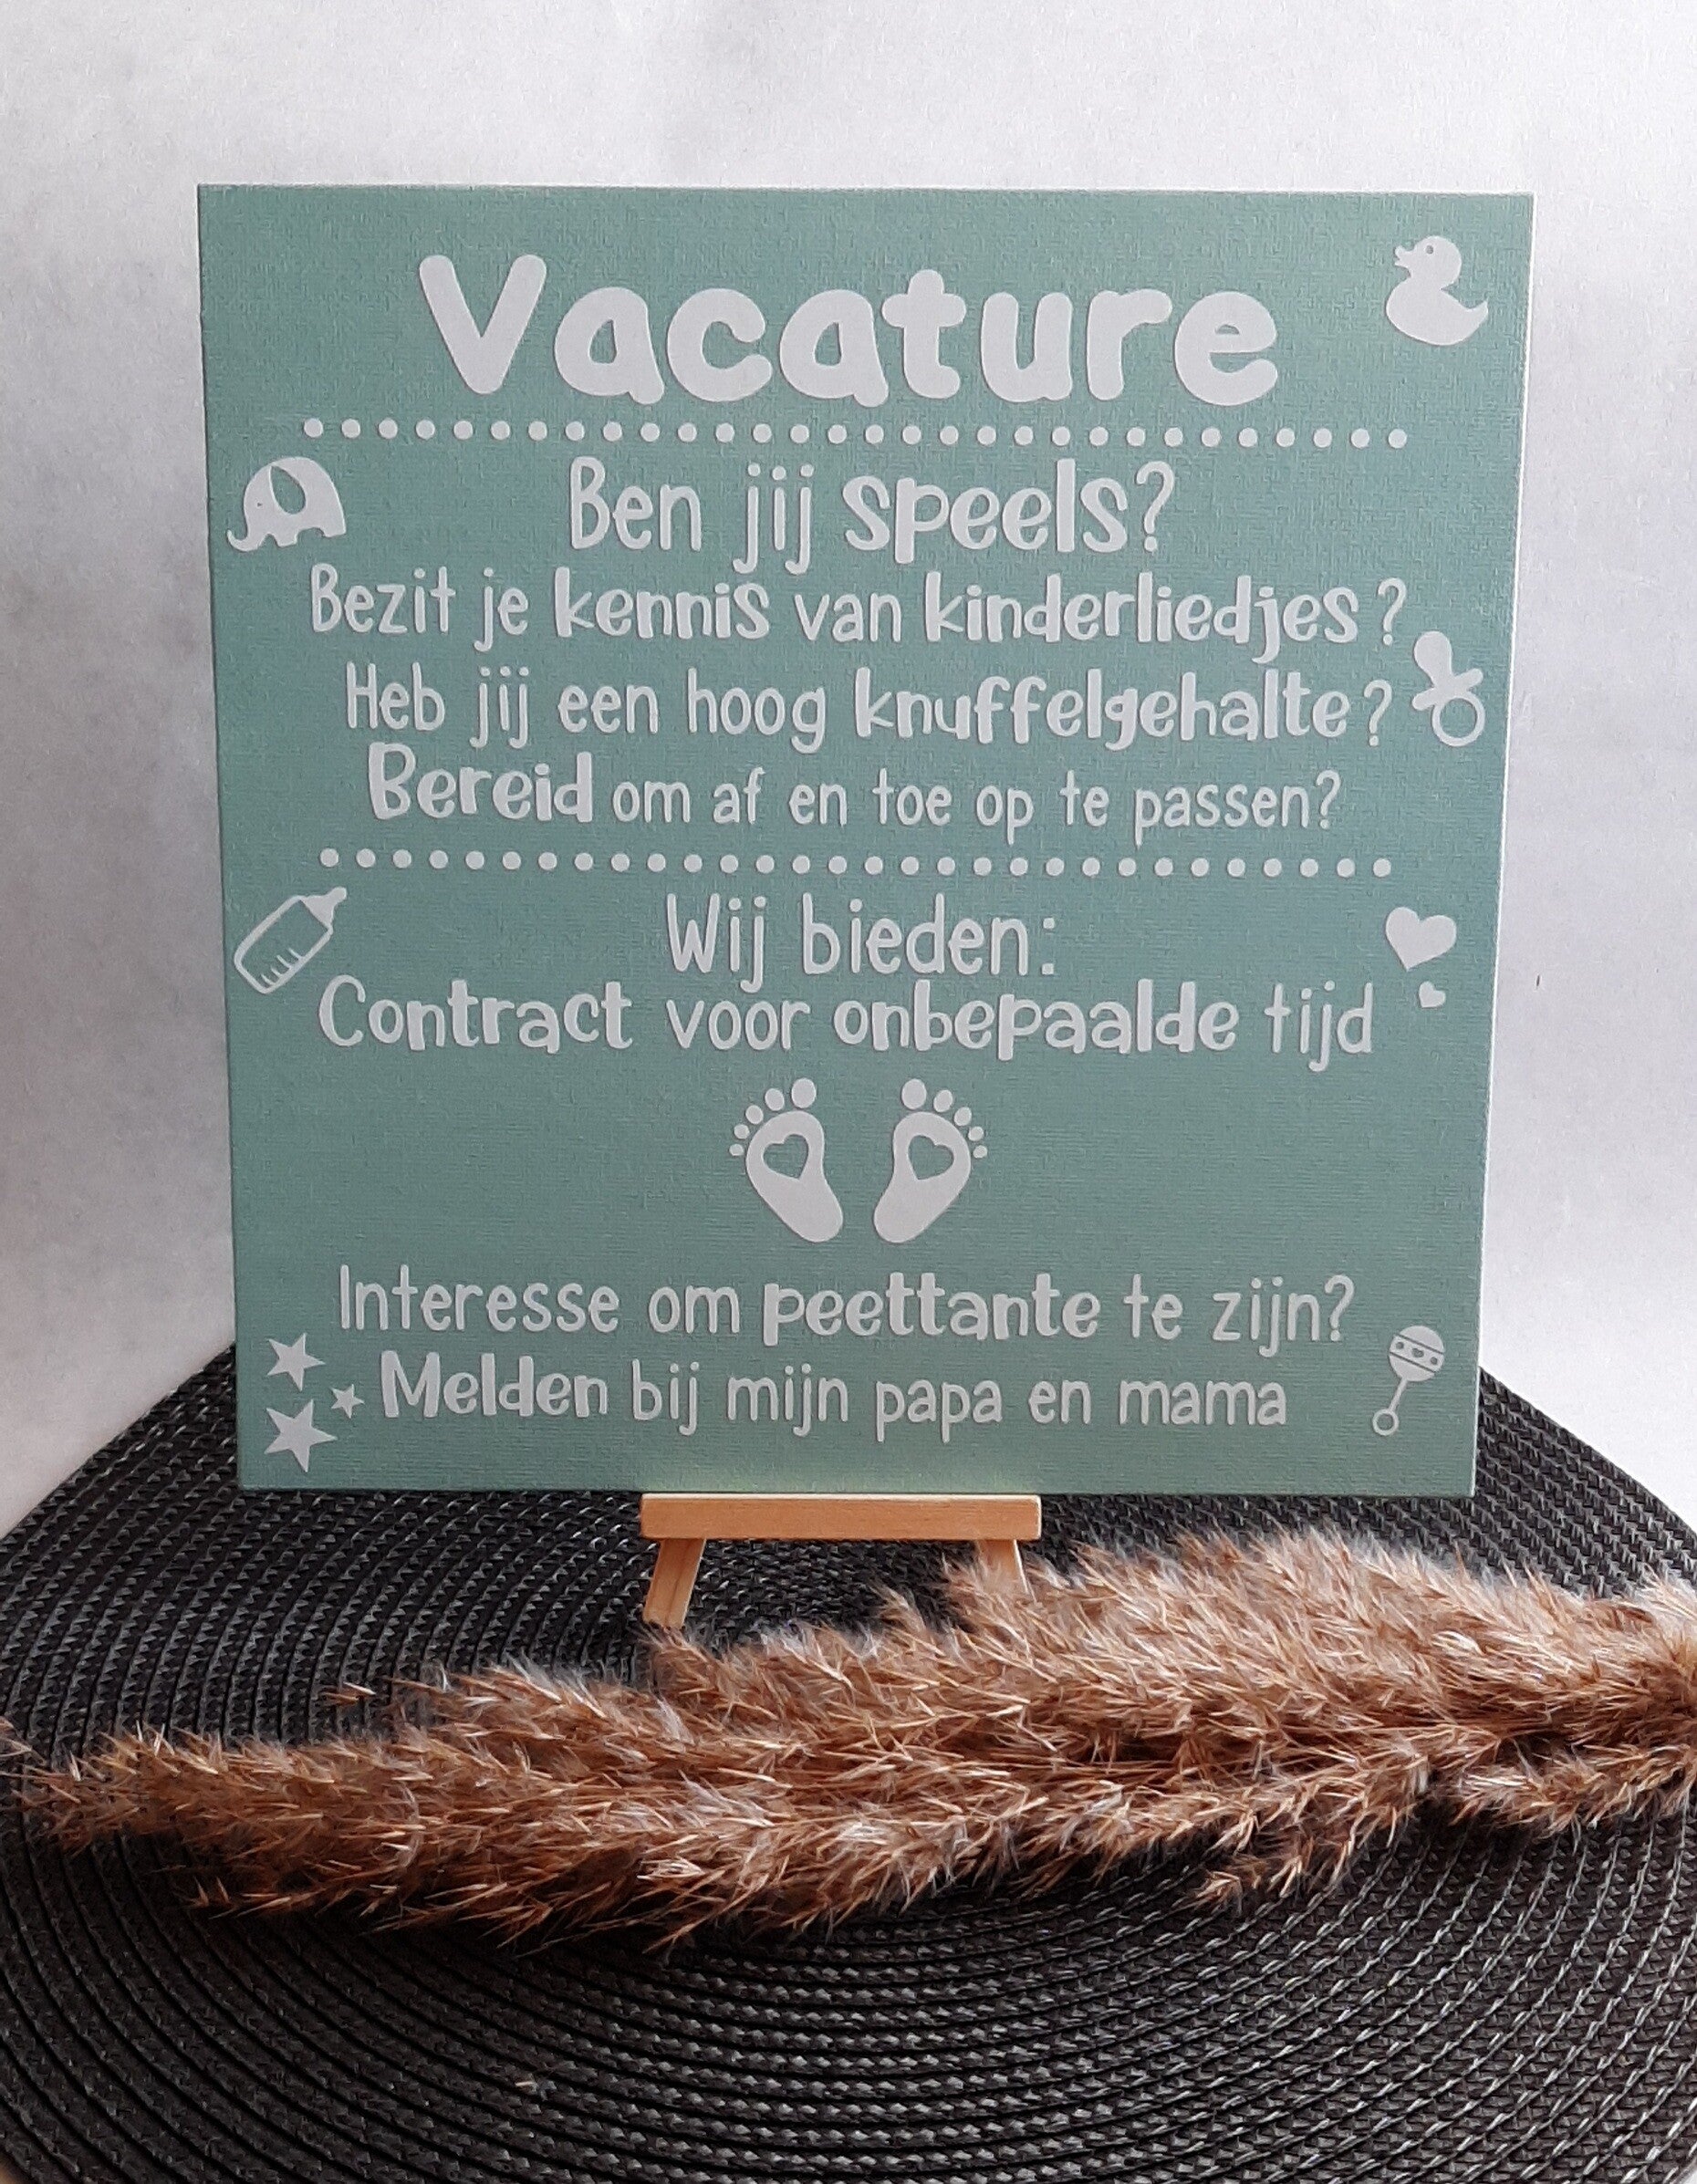 Vacature
Ben jij speels?
Bezit je kennis van kinderliedjes?
Heb jij een hoog knuffelgehalte?
Bereid om af en toe op te passen?
Wij bieden:
Contract voor onbepaalde tijd
Interesse om peettante te zijn?
Melden bij mijn papa en mama